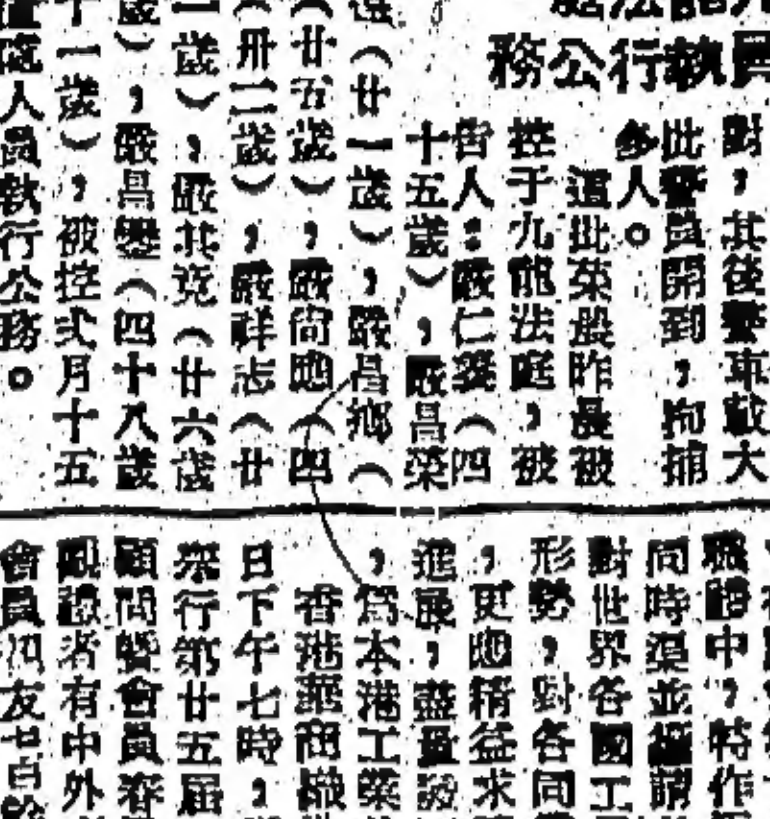 員執行公務
對，其後警車載大
批警員開到，拘捕
多人。
這批菜販昨晨被
控于九龍法庭，被
告人：嚴仁（四
十五歲），嚴昌榮
（廿一歲），嚴昌（
（廿五歲），嚴尚（四
（卅二歲），嚴祥志（廿
一歲），嚴其（廿六歲
歲），嚴昌（四十八歲
十一歲），被控弍月十五
人員執行公務。
中，特作
同時渠並請
對世界各國工
形勢，對各同
，更精益求
進展，盡量
，為本港工業
香港華商織
日下午七時，
舉行第廿五屆
顧問暨會員春
觀禮者有中外
會員親友七百